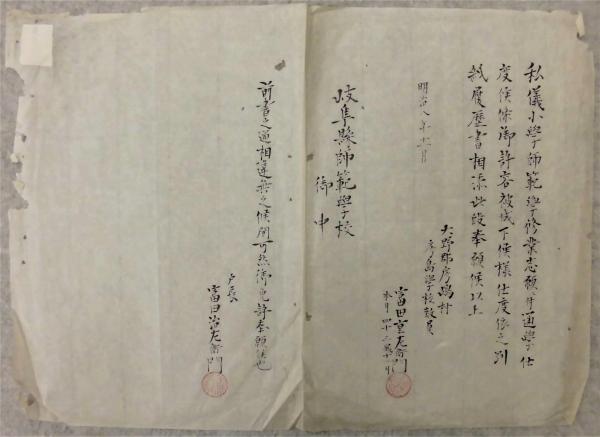 私儀小學師範學修業志願ニ付通學仕
度候条御許容被成下候様仕度依之別
紙履歴書相添此段奉願候以上
明治八年 月
大野郡 村
學校教員
富田重左衛門
年月 四十二
岐阜縣師範學校
御中
前書之通相違無之候間可然御免許奉願候也
戸長
富田治左衛門